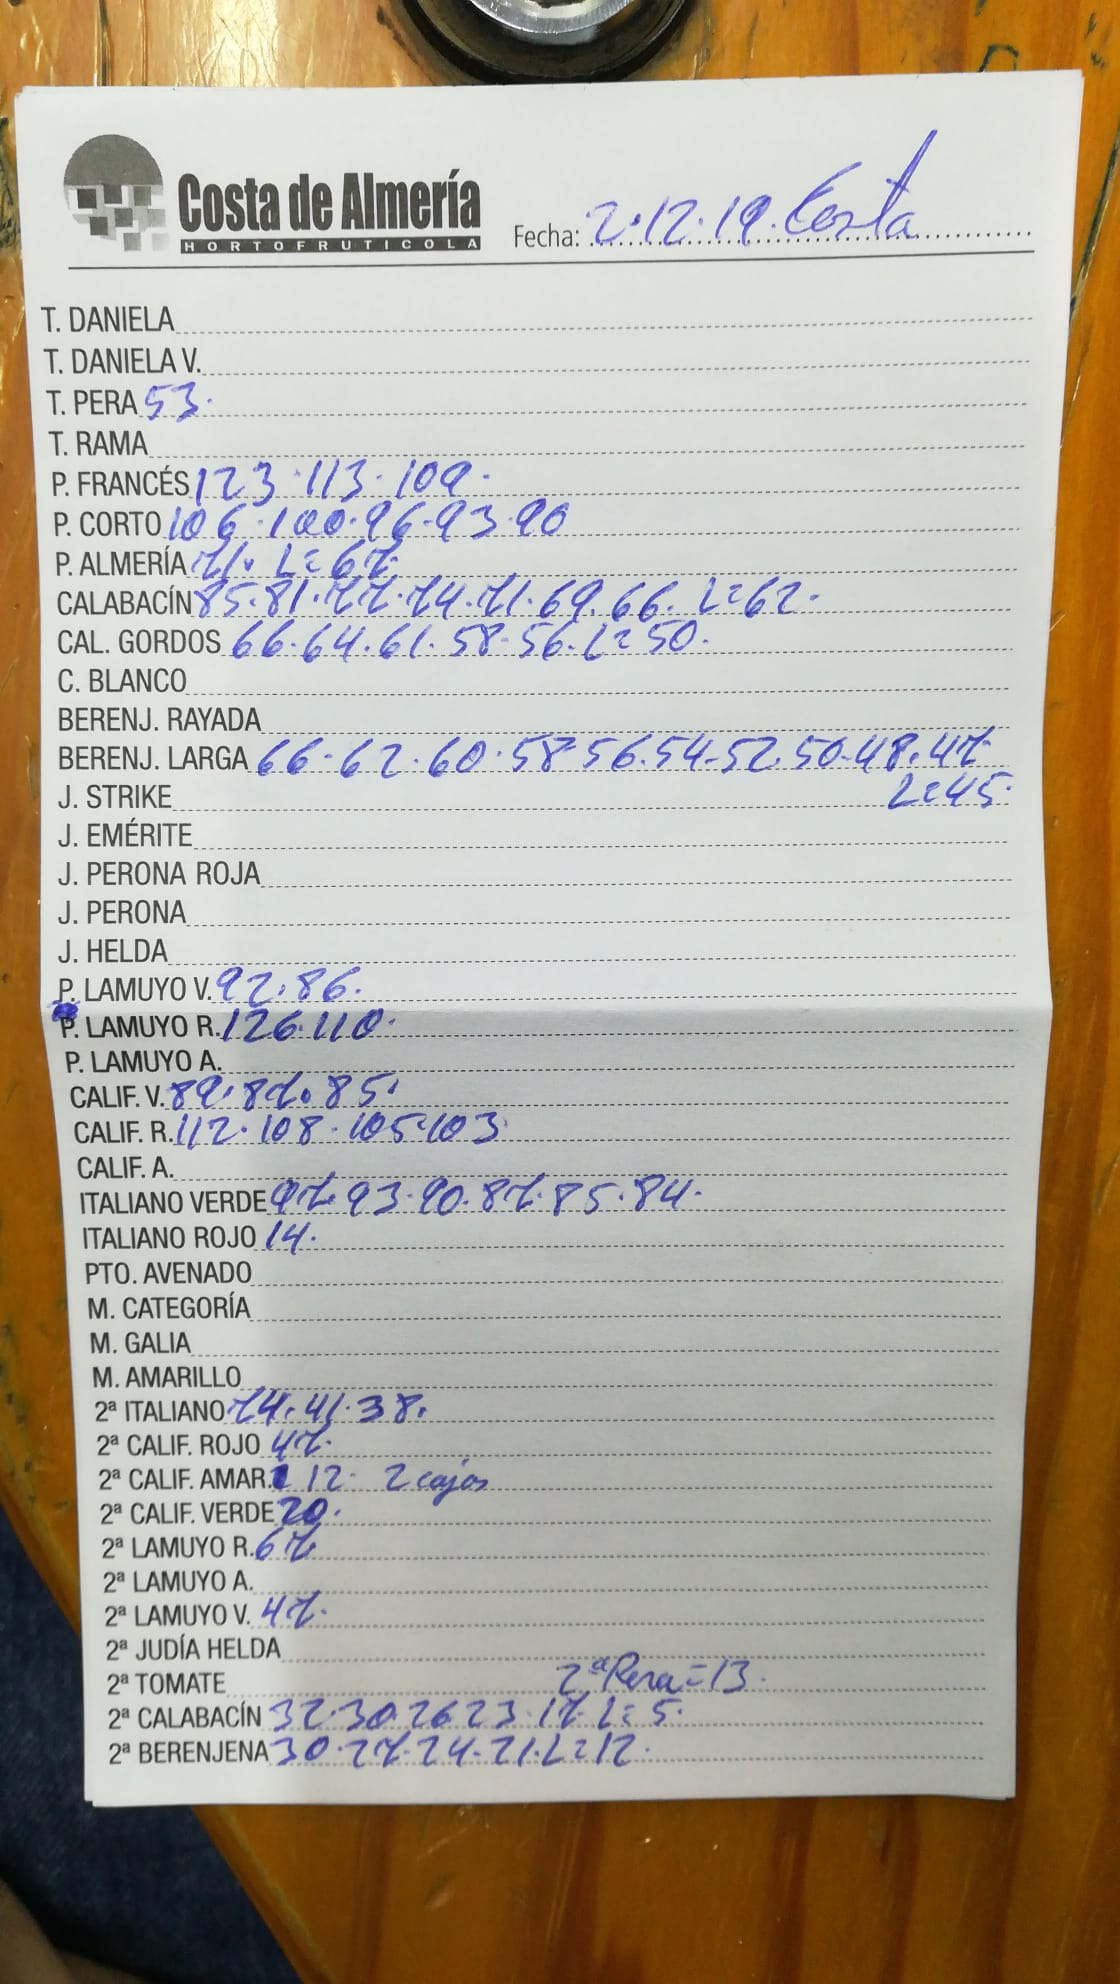 Costa de Almería
HORTOFRUTICOLA
Fecha: 2.12.19. Costa
T. DANIELA
T. DANIELA V.
T. PERA 53.
T. RAMA
P. FRANCÉS 123.113.109.
P. CORTO 106.100.96.93.90
P. ALMERÍA 71. L=67.
CALABACÍN 85.81.77.74.71.69.66. L=62.
CAL. GORDOS 66.64.61.58.56.L=50.
C. BLANCO
BERENJ. RAYADA
BERENJ. LARGA 66.62.60.58.56.54.52.50.48.47
J. STRIKE L=45.
J. EMÉRITE
J. PERONA ROJA
J. PERONA
J. HELDA
P. LAMUYO V. 92.86.
P. LAMUYO R. 126.110.
P. LAMUYO A.
CALIF. V. 89.87.85.
CALIF. R. 112.108.105.103
CALIF. A.
ITALIANO VERDE 97.93.90.87.85.84.
ITALIANO ROJO 14.
PTO. AVENADO
M. CATEGORÍA
M. GALIA
M. AMARILLO
2ª ITALIANO 74.41.38.
2ª CALIF. ROJO 47.
2ª CALIF. AMAR. 12. 2 cajas
2ª CALIF. VERDE 20.
2ª LAMUYO R. 67
2ª LAMUYO A.
2ª LAMUYO V. 47.
2ª JUDÍA HELDA
2ª TOMATE 2ª Pera=13.
2ª CALABACÍN 32.30.26.23.17.L=5.
2ª BERENJENA 30.27.24.21.L=12.